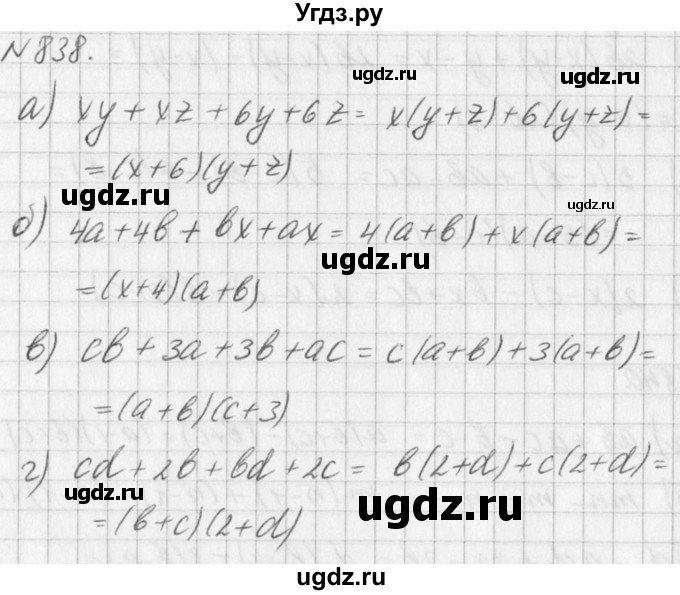 Угдз.ру
N838.
ugdz.ru
ugdz.ru
а) xy + xz + 6y + 6z = x(y+z) + 6(y+z) =
= (x+6)(y+z)
ugdz.ru
ugdz.ru
б) 4a + 4b + bx + ax = 4(a+b) + x(a+b) =
ugdz.ru
= (x+4)(a+b)
в) cb + 3a + 3b + ac = c(a+b) + 3(a+b) =
ugdz.ru
= (a+b)(c+3)
г) cd + 2b + bd + 2c = b(2+d) + c(2+d) =
ugdz.ru
ugdz.ru
= (b+c)(2+d)
ugdz.ru
ugdz.ru